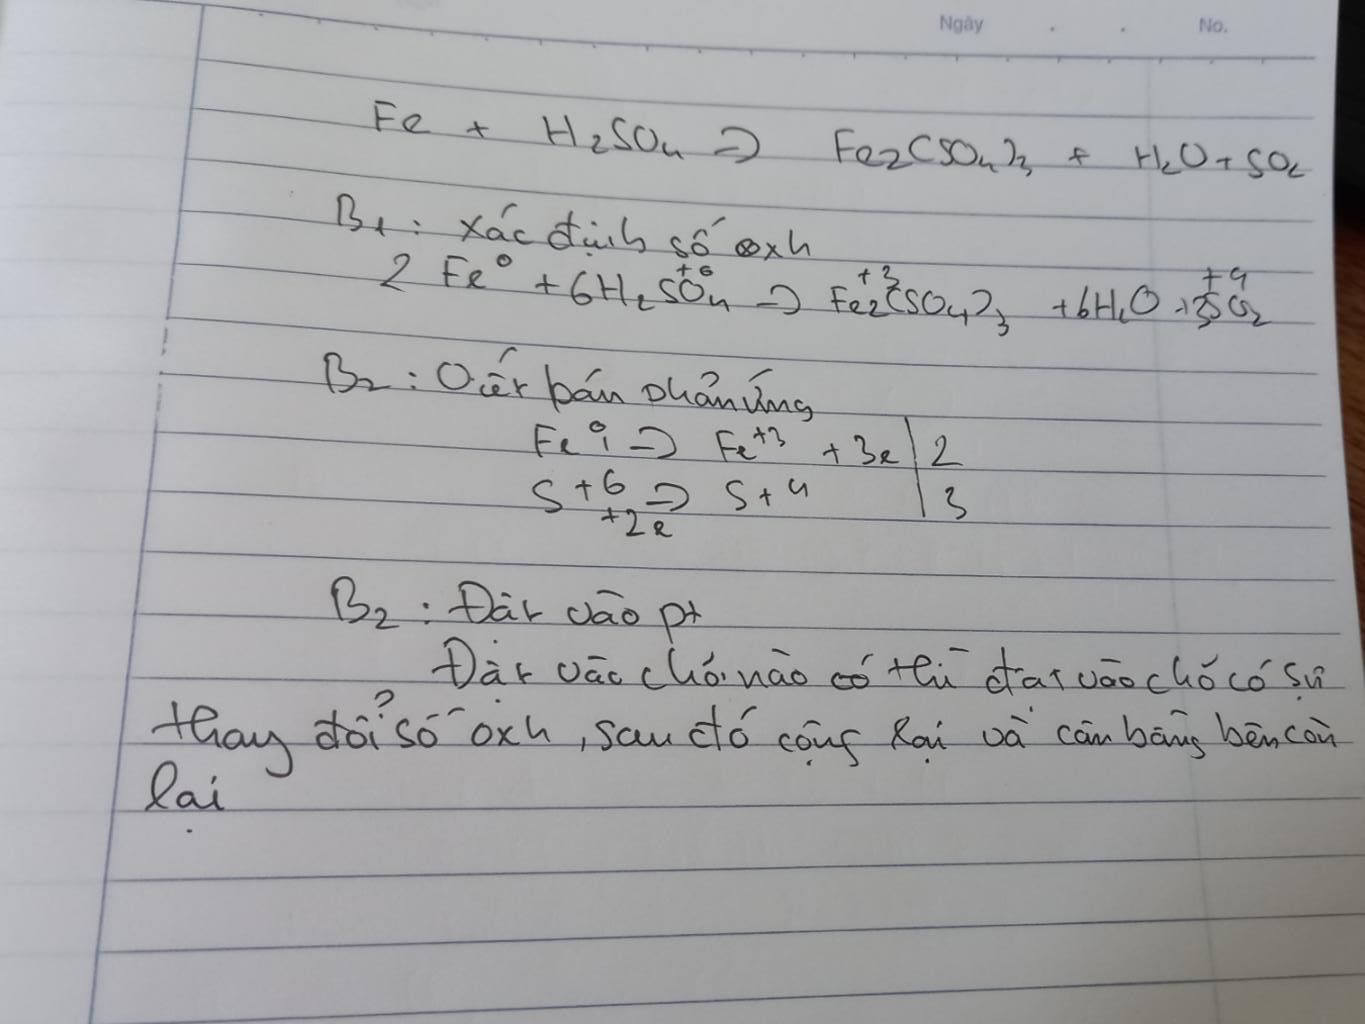 Ngày . . No.
Fe + H₂SO₄ => Fe₂(SO₄)₃ + H₂O + SO₂
B₁: Xác định số oxh
2 Fe⁰ + 6H₂S⁺⁶O₄ => Fe⁺³₂(SO₄)₃ + 6H₂O + 3S⁺⁴O₂
B₂: Viết bán phản ứng
Fe⁰ => Fe⁺³ + 3e | 2
S+6 +2e => S+4 | 3
B₂: Đặt vào pt
Đặt vào chỗ nào có thể đặt vào chỗ có sự
thay đổi số oxh, sau đó cộng lại và cân bằng bên còn
lại